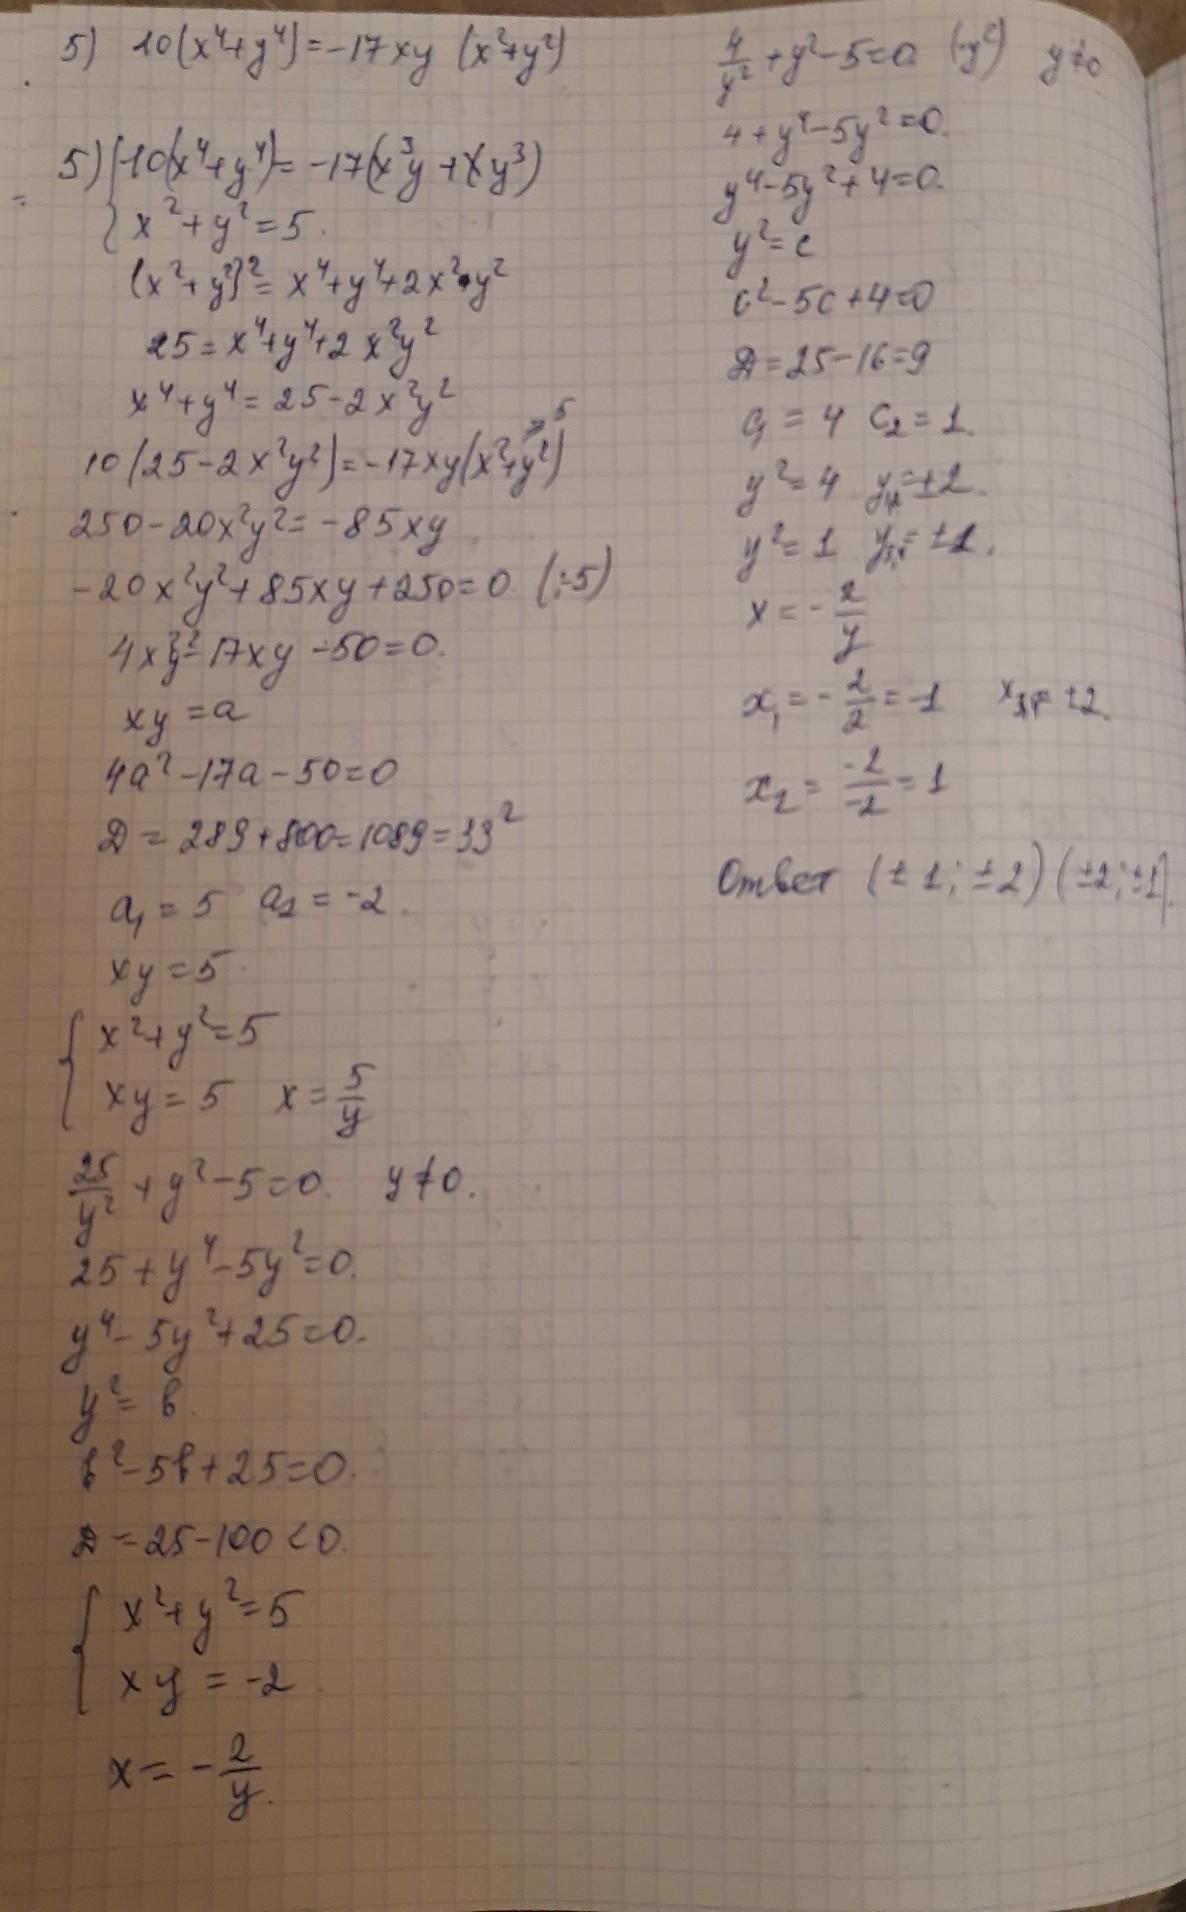 5) 10(x⁴+y⁴)=-17xy (x²+y²)
5) { 10(x⁴+y⁴)=-17(x³y+xy³)
x²+y²=5.
(x²+y²)²=x⁴+y⁴+2x²·y²
25=x⁴+y⁴+2x²y²
x⁴+y⁴=25-2x²y²
10(25-2x²y²)=-17xy(x²+y²) =5
250-20x²y²=-85xy
-20x²y²+85xy+250=0 (:-5)
4x²y²-17xy-50=0.
xy=a
4a²-17a-50=0
D=289+800=1089=33²
a₁=5 a₂=-2.
xy=5
{ x²+y²=5
xy=5 x=5/y
25/y²+y²-5=0. y≠0.
25+y⁴-5y²=0.
y⁴-5y²+25=0.
y²=в.
в²-5в+25=0.
D=25-100<0.
{ x²+y²=5
xy=-2.
x=-2/y.
4/y²+y²-5=0 (·y²) y≠0
4+y⁴-5y²=0.
y⁴-5y²+4=0.
y²=c
c²-5c+4=0
D=25-16=9
c₁=4 c₂=1.
y²=4 y₁,₂=±2.
y²=1 y₃,₄=±1.
x=-2/y
x₁=-2/2=-1 x₃,₄=±2.
x₂=-2/-2=1
Ответ (±1;±2)(±2;±1).